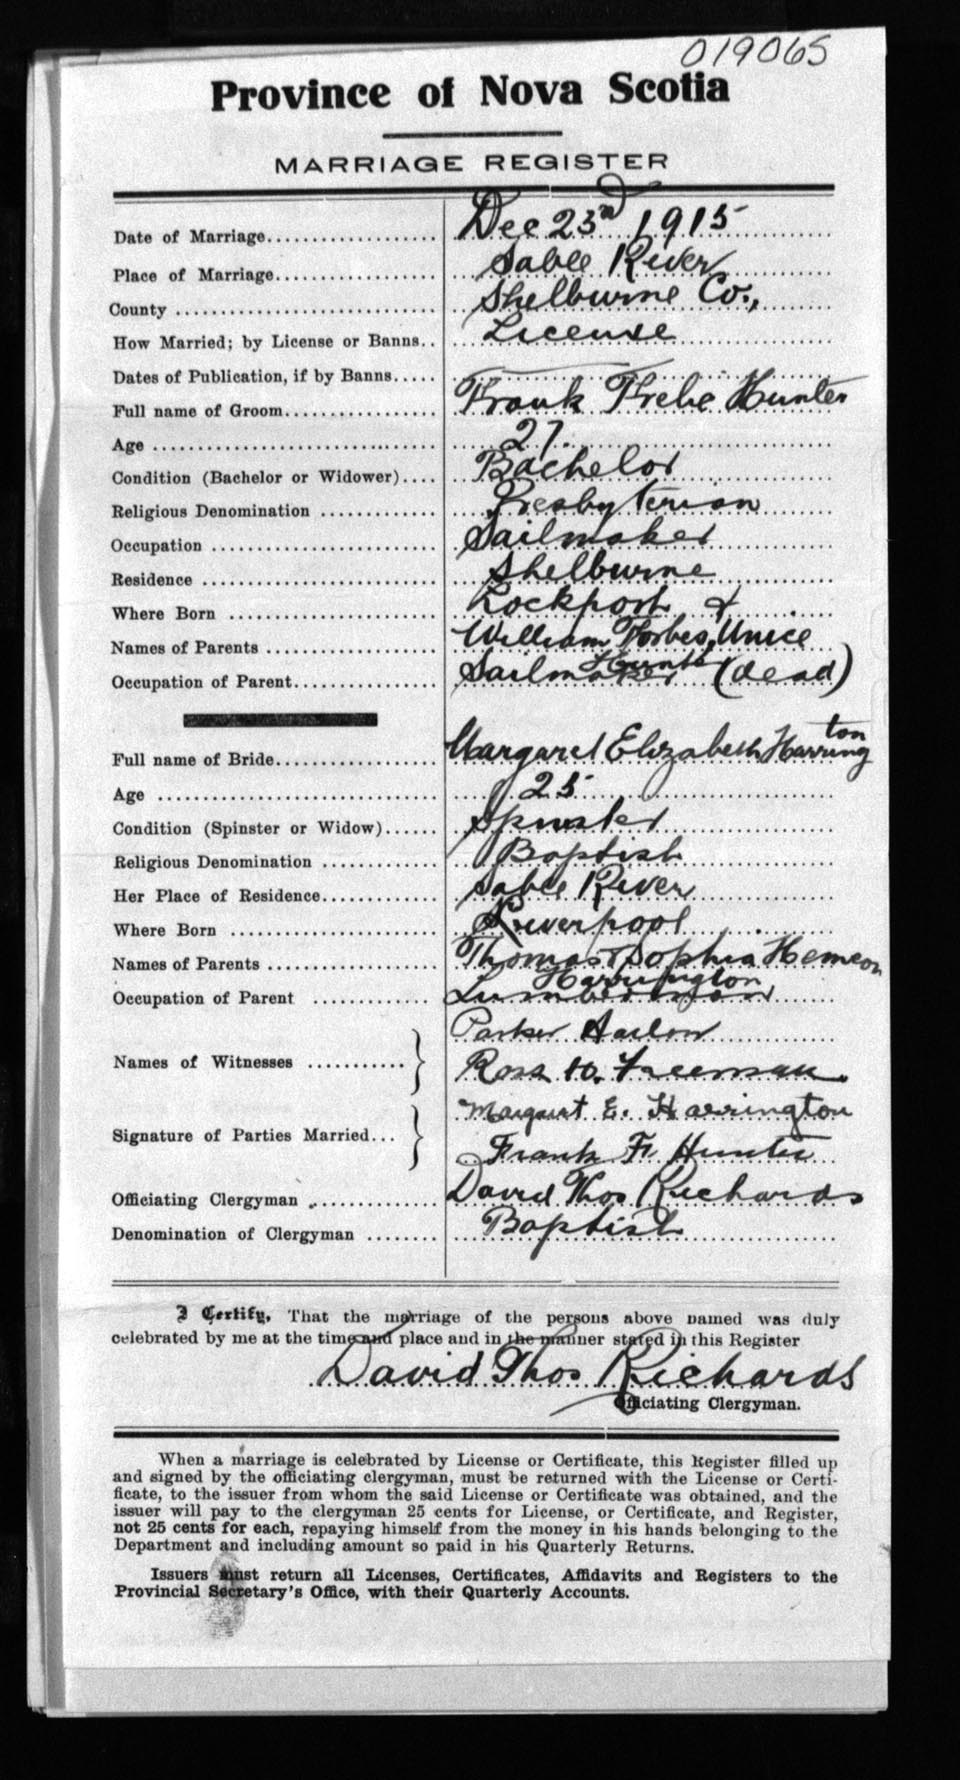 019065
Province of Nova Scotia
MARRIAGE REGISTER
Date of Marriage Dec 23rd 1915
Place of Marriage Sable River
County Shelburne Co.,
How Married; by License or Banns License
Dates of Publication, if by Banns
Full name of Groom Frank Hunter
Age 27.
Condition (Bachelor or Widower) Bachelor
Religious Denomination Presbyterian
Occupation Sailmaker
Residence Shelburne
Where Born Lockport
Names of Parents William Forbes, Unice
Hunter
Occupation of Parent Sailmaker (dead)
Full name of Bride Margaret Elizabeth Harrington
Age 25
Condition (Spinster or Widow) Spinster
Religious Denomination Baptist
Her Place of Residence Sable River
Where Born Liverpool
Names of Parents Thomas & Sophia Hemeon
Harrington
Occupation of Parent Lumberman
Names of Witnesses Parker Harlow
Ross W. Freeman
Signature of Parties Married Margaret E. Harrington
Frank F. Hunter
Officiating Clergyman David Thos Richards
Denomination of Clergyman Baptist
I Certify, That the marriage of the persons above named was duly
celebrated by me at the time and place and in the manner stated in this Register
David Thos Richards
Officiating Clergyman.
When a marriage is celebrated by License or Certificate, this Register filled up
and signed by the officiating clergyman, must be returned with the License or Certi-
ficate, to the issuer from whom the said License or Certificate was obtained, and the
issuer will pay to the clergyman 25 cents for License, or Certificate, and Register,
not 25 cents for each, repaying himself from the money in his hands belonging to the
Department and including amount so paid in his Quarterly Returns.
Issuers must return all Licenses, Certificates, Affidavits and Registers to the
Provincial Secretary's Office, with their Quarterly Accounts.